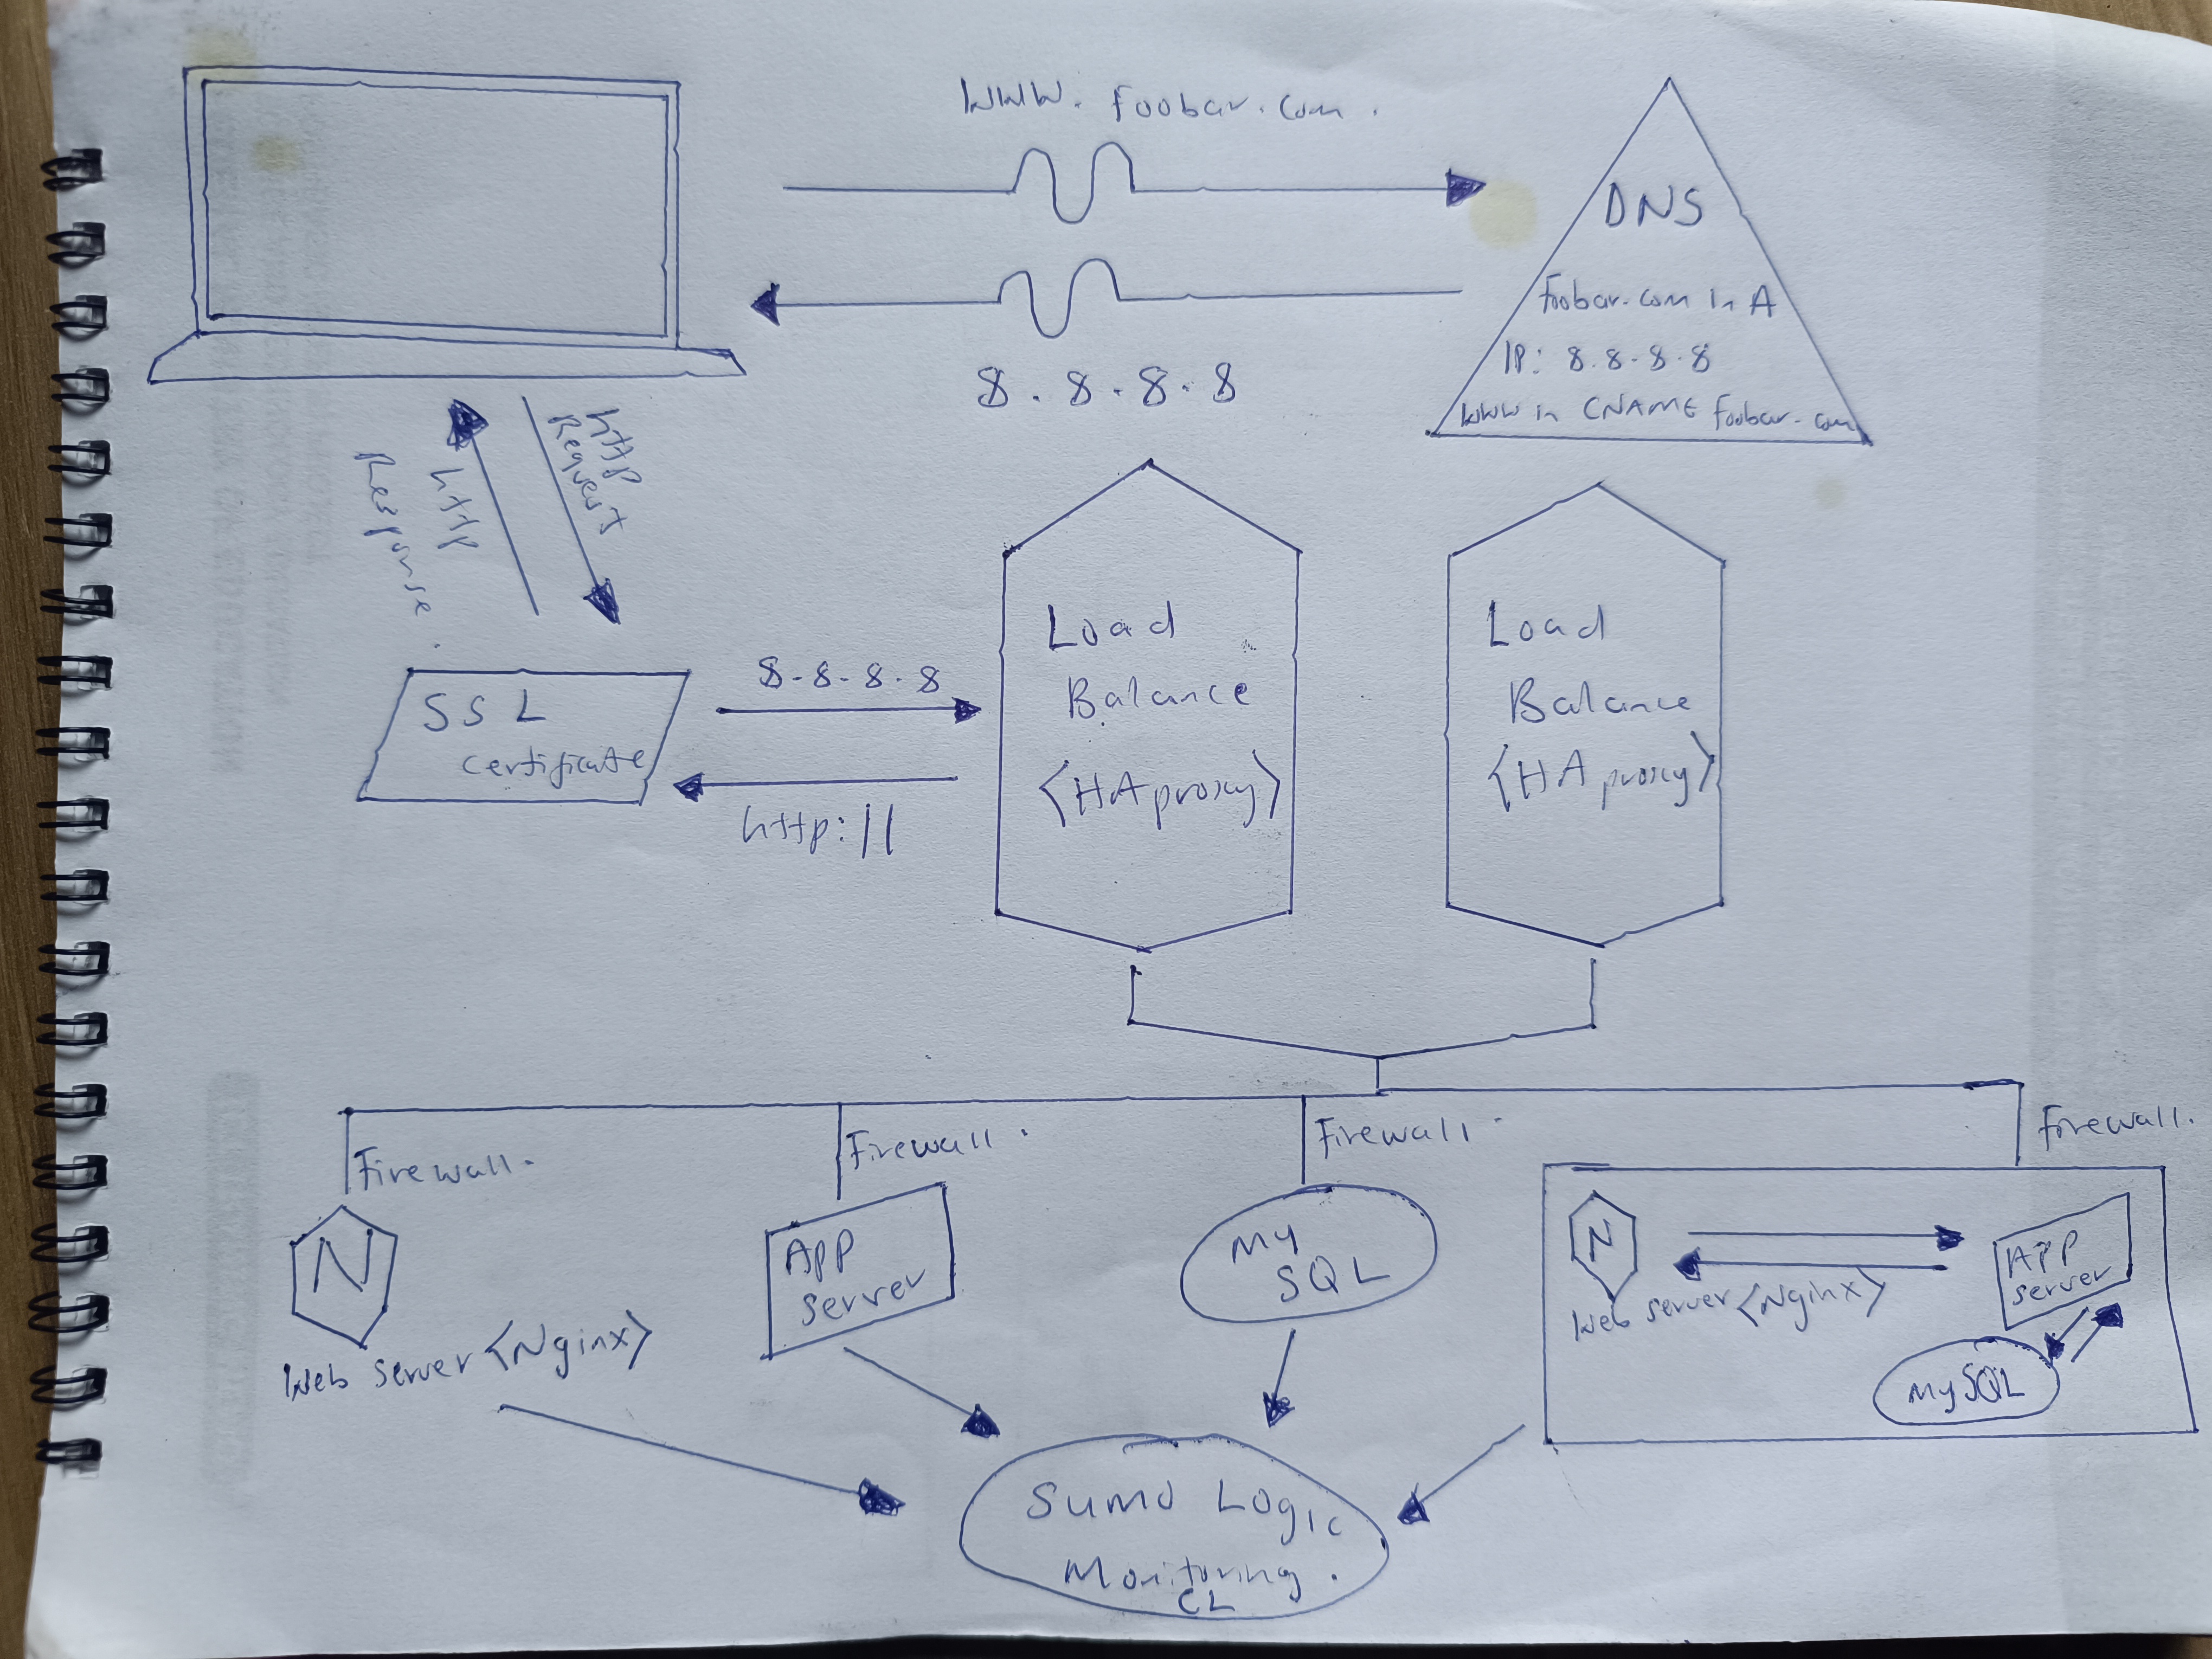 www. foobar.com.
DNS
foobar.com in A
IP: 8.8.8.8
www in CNAME foobar.com
8.8.8.8
http
Request
http
Response.
SSL
certificate
8.8.8.8
http://
Load
Balance
<HAproxy>
Load
Balance
<HAproxy>
Firewall.
Firewall.
Firewall.
firewall.
N
Web Server <Nginx>
APP
Server
My
SQL
N
Web server <Nginx>
APP
Server
MySQL
Sumo Logic
Monitoring.
CL